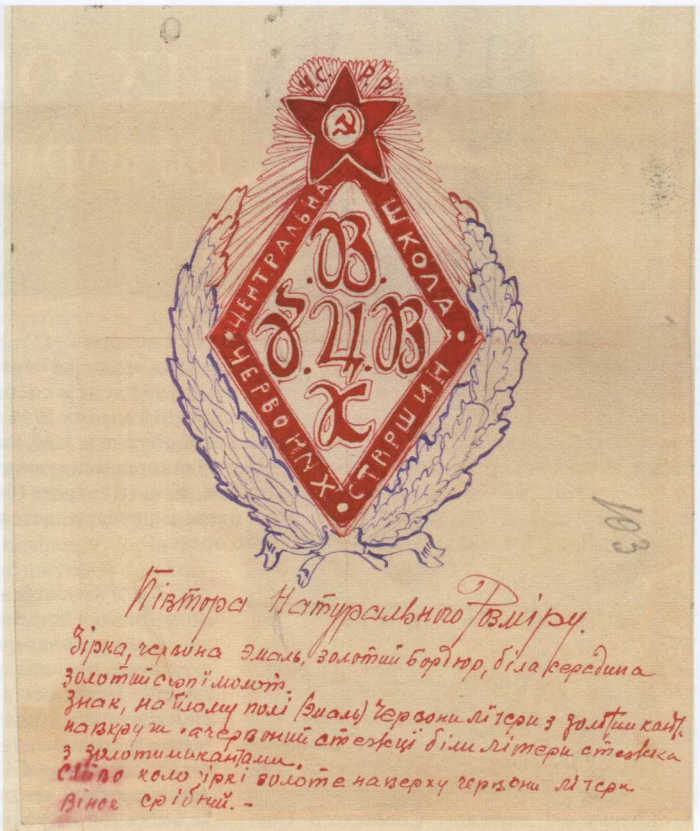 У.С.Р.Р.
ЦЕНТРАЛЬНА ШКОЛА
.В.
Б.Ц.В
Х
ЧЕРВОНИХ СТАРШИН
103
Півтора натурального Розміру.
Зірка, червона эмаль, золотий бордюр, біла середина
золотий серп і молот.
Знак, на білому полі (эмаль) червони літери з золотим кант.
навкруги. а червоний стежці били літери стежка
з золотими кантами.
коло зіркі золоте наверху червони літери
Вінок срібний. -